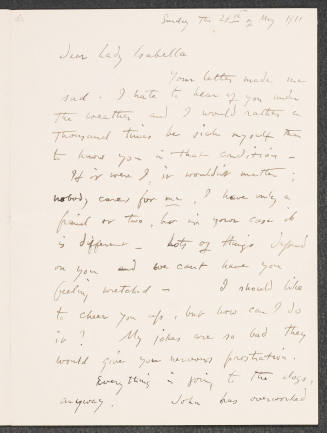 Sunday the 28th of May 1911
Dear Lady Isabella
Your letter made me
sad. I hate to hear of you under
the weather and I would rather a
thousand times be sick myself than
to know you in that condition –
If it were I, it wouldn't matter;
nobody cares for me, I have only a
friend or two, but in your case it
is different – Lots of things depend
on you and we can't have you
feeling wretched – I should like
to cheer you up, but how can I do
it? My jokes are so bad they
would give you nervous prostration.
Everything is going to the dogs,
anyway. John has overworked